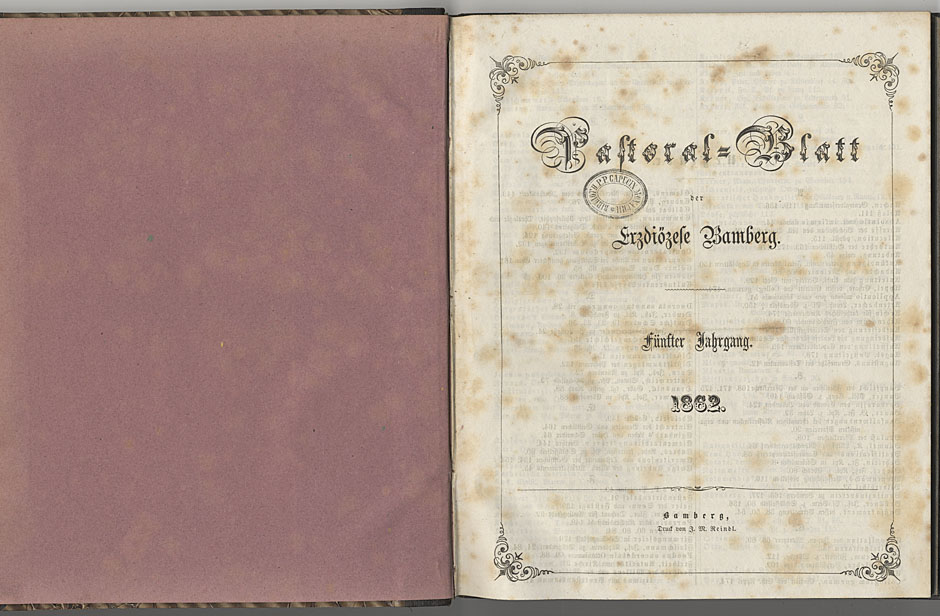 Pastoral-Blatt
BIBLIOTH. P.P. CAPUCIN. MONACHII
der
Erzdiözese Bamberg.
Fünfter Jahrgang.
1862.
Bamberg,
Druck von J. M. Reindl.